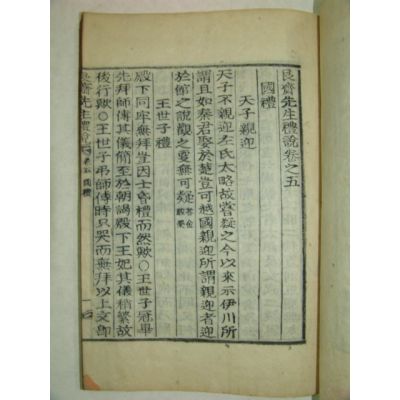 艮齋先生禮說卷之五
國禮
天子親迎
天子不親迎左氏大略故嘗疑之今以來示伊川所
謂且如秦君娶於楚豈可越國親迎所謂親迎者迎
於館之說觀之憂無可疑答金駿榮
王世子禮
殿下同牢無拜豈因士昏禮而然歟〇王世子冠畢
先拜師傅其儀簡至於朝謁殿下王妃其儀稍繁故
後行歟〇王世子弔師傅時只哭而無拜以上文郞
艮齋先生禮說 卷五 國禮 一